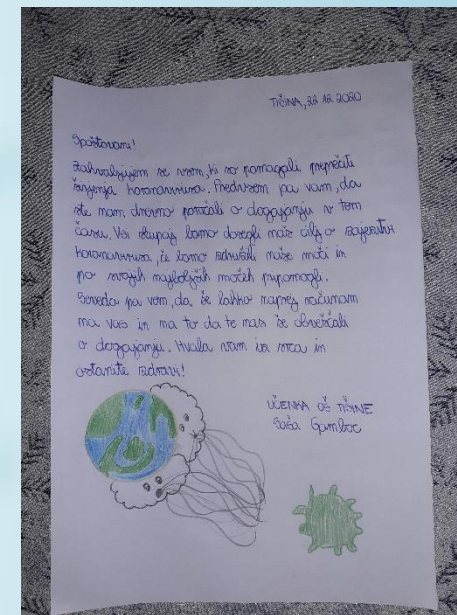 TIŠINA, 22.12.2020
Spoštovani!
Zahvaljujem se vsem, ki so pomagali preprečiti
širjenja koronavirusa. Predvsem pa vam, da
ste nam dnevno poročali o dogajanju v tem
času. Vsi skupaj bomo dosegli naš cilj o zajezitvi
koronavirusa, če bomo združili naše moči in
po svojih najboljših močeh pripomogli.
Seveda pa vem, da še lahko naprej računam
na vas in na to da te nas še obveščali
o dogajanju. Hvala vam iz srca in
ostanite zdravi!
UČENKA OŠ TIŠINE
Gomboc